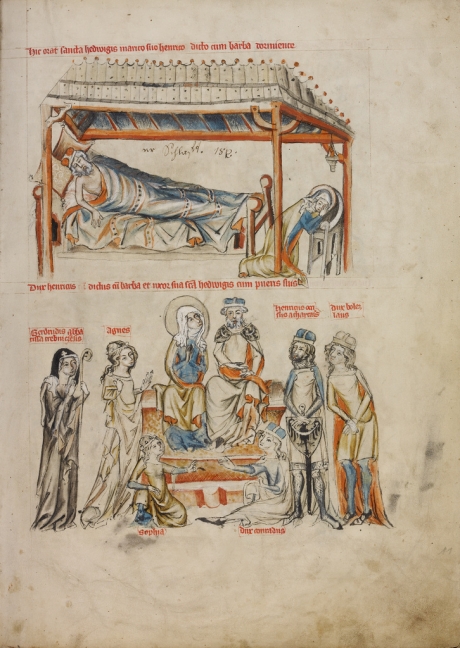 Hic orat sancta hedwigis marito suo henrico dicto cum barba dormiente
Dux henricus dictus cum barba et uxor sua sancta hedwigis cum pueris suis
Gerdrudis abba
tissa trebnicensis
Agnes
henricus
dux boles
laus
Sophia
dux conradus